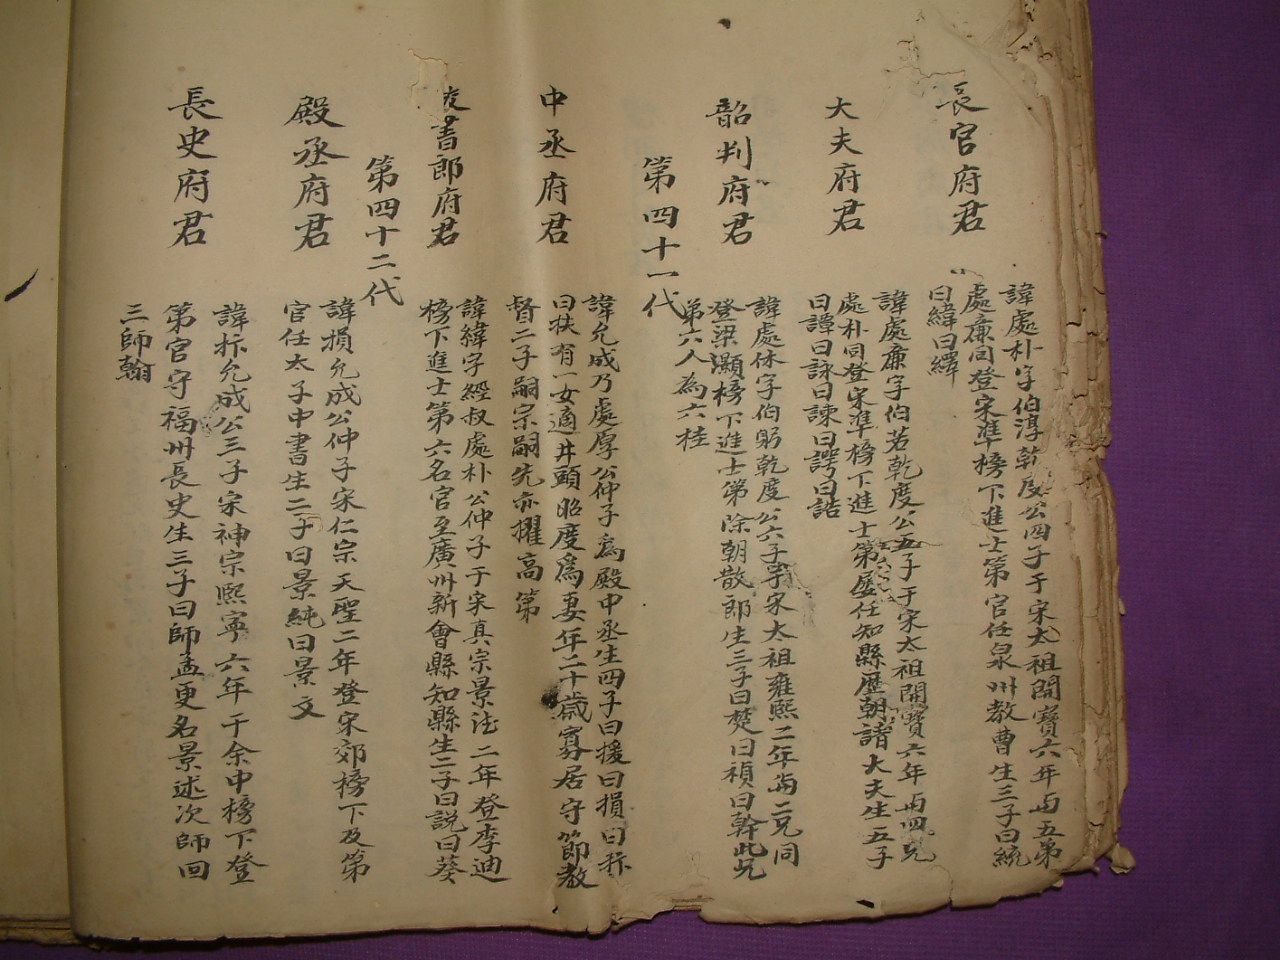 長官府君
諱處朴字伯淳乾度公四子于宋太祖開寶六年與五弟
處廉同登宋準榜下進士第官任泉州教曹生三子曰統
曰緯曰繹
大夫府君
諱處廉字伯若乾度公五子于宋太祖開寶六年與四兄
處朴同登宋準榜下進士第歷任知縣歷朝請大夫生五子
曰譚曰詠曰諫曰諤曰誥
韶判府君
諱處休字伯躬乾度公六子宋太祖雍熙二年與二兄同
登梁灝榜下進士第除朝散郎生三子曰楚曰禎曰幹此兄
弟六人為六桂
第四十一代
中丞府君
諱允成乃處厚公仲子為殿中丞生四子曰援曰損曰柝
曰扶有一女適井頭昭度為妻年二十歲寡居守節教
督二子嗣宗嗣先亦擢高第
書郎府君
諱緯字經叔處朴公仲子于宋真宗景法二年登李迪
榜下進士第六名官至廣州新會縣知縣生二子曰說曰葵
第四十二代
殿丞府君
諱損允成公仲子宋仁宗天聖二年登宋郊榜下及第
官任太子中書生二子曰景純曰景文
長史府君
諱柝允成公三子宋神宗熙寧六年于余中榜下登
第官守福州長史生三子曰師孟更名景述次師回
三師翰